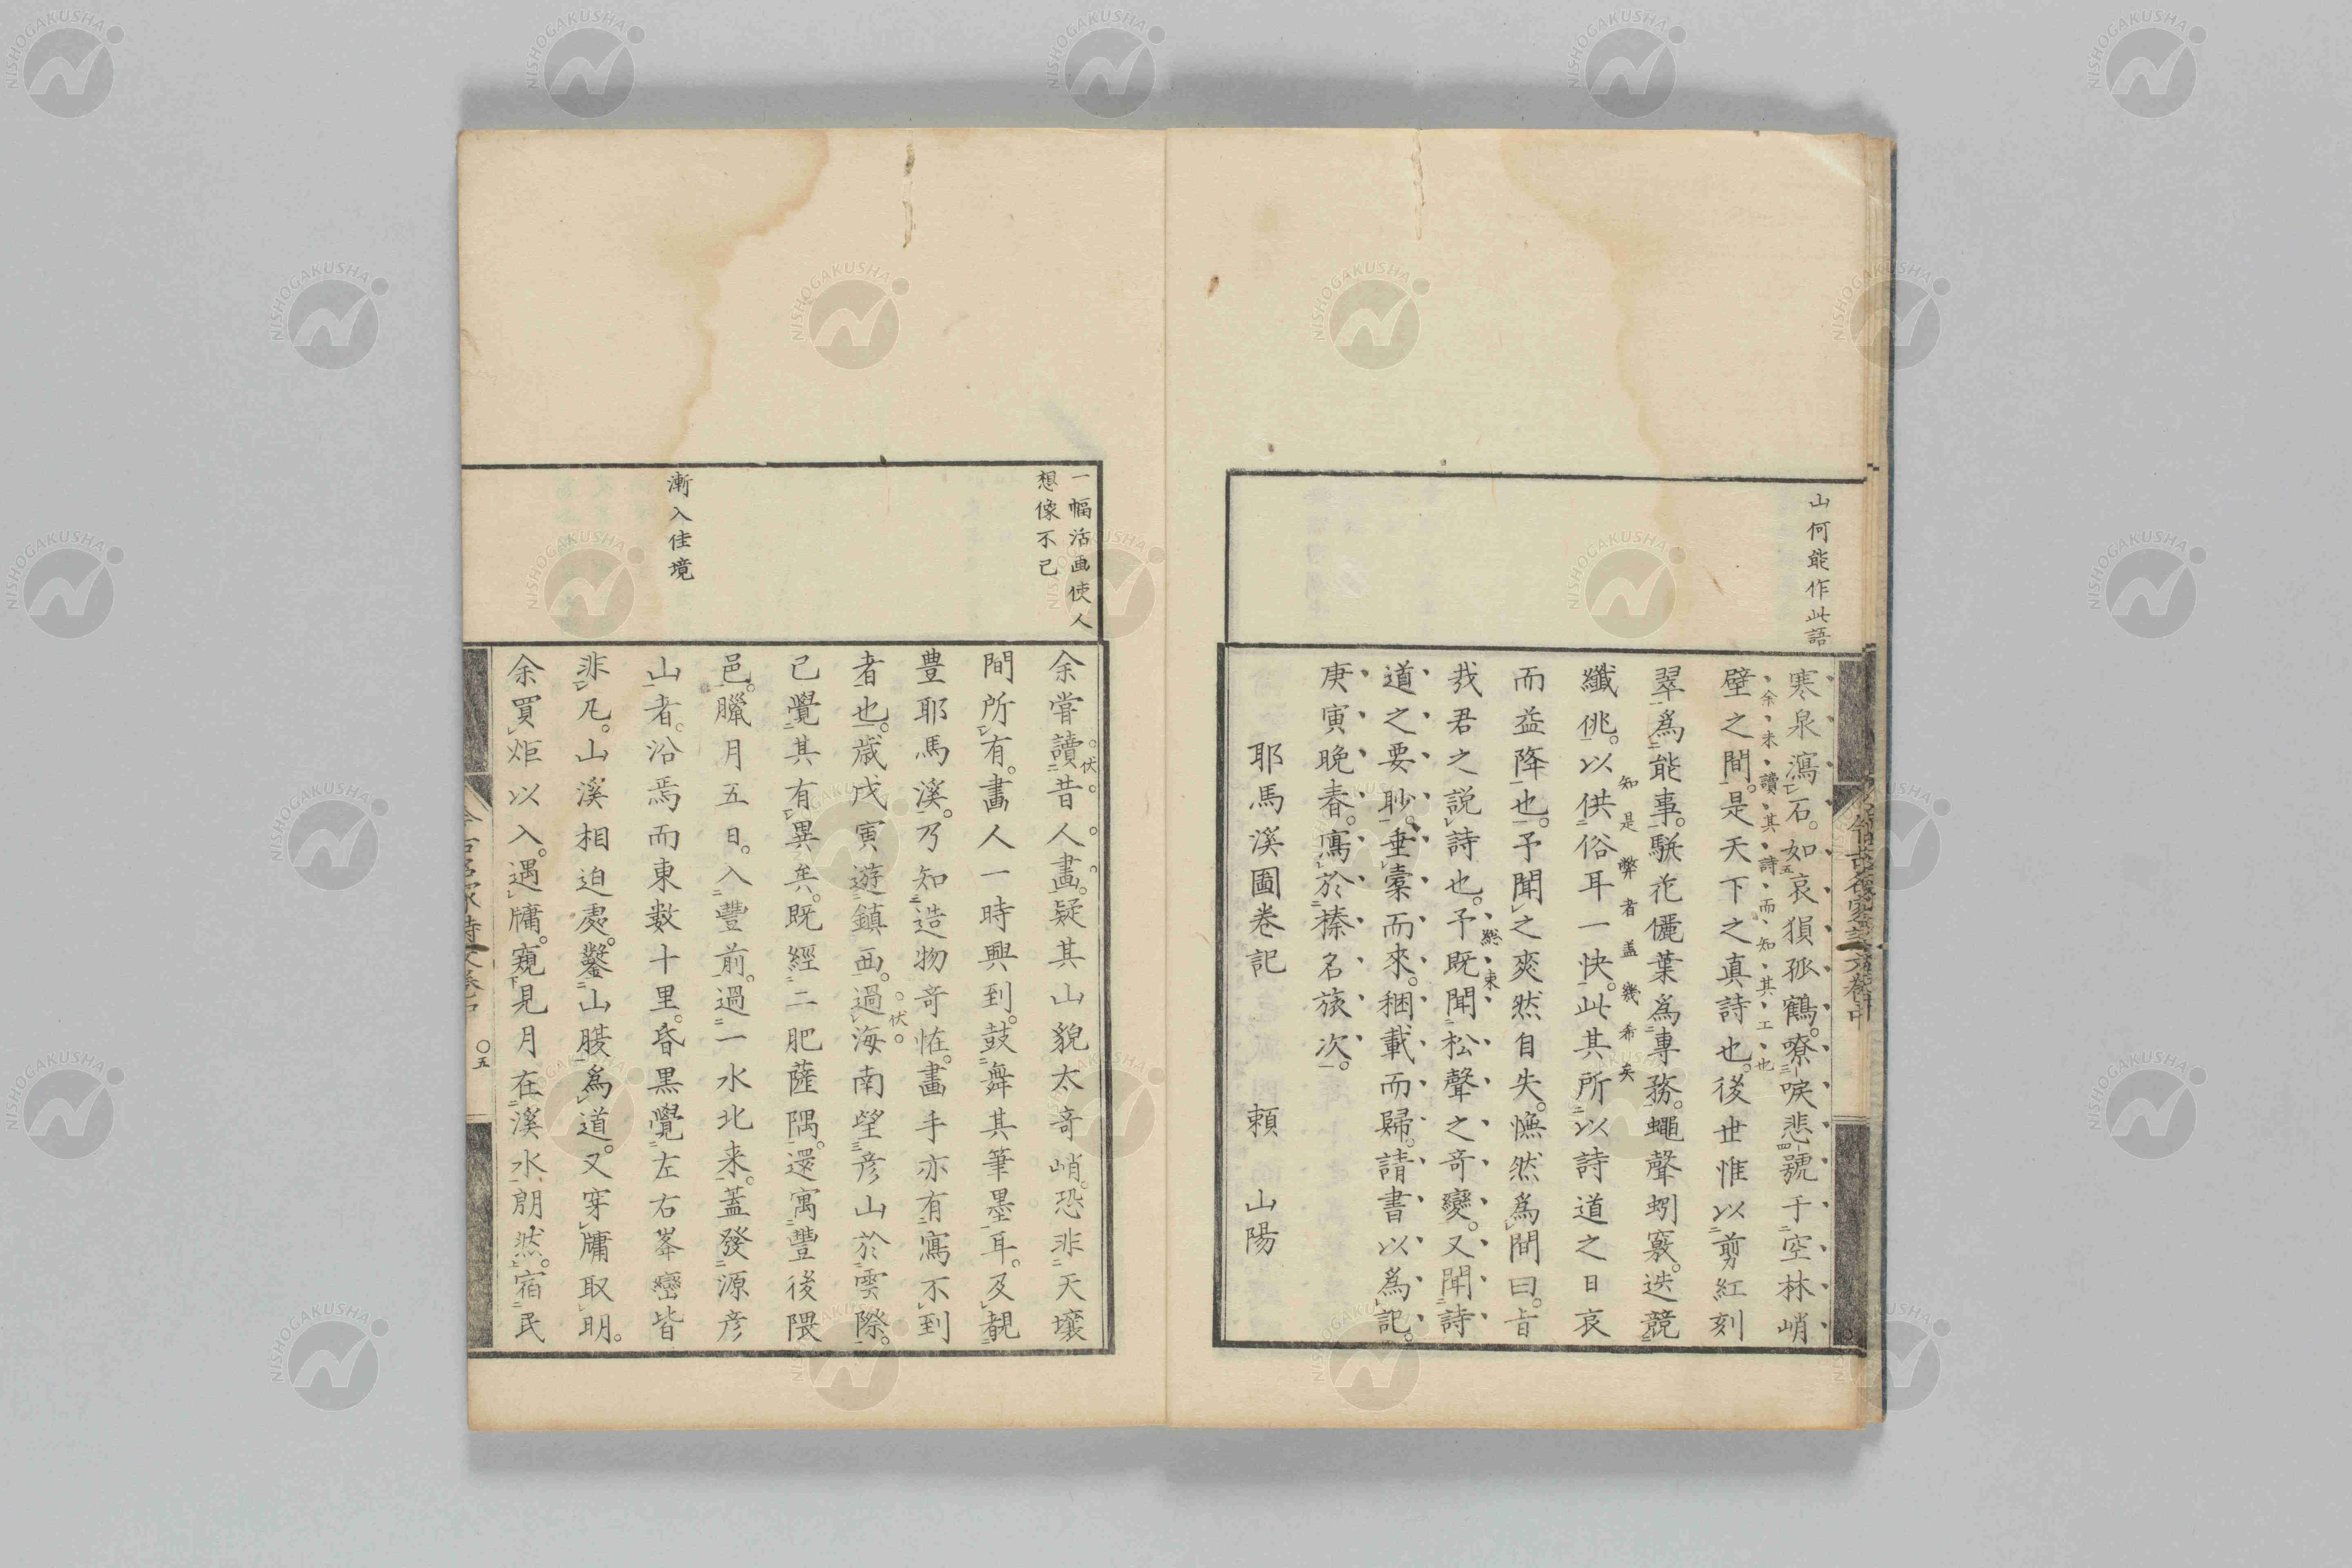 山何能作此語
寒泉瀉石。如哀猨孤鶴。嘹唳悲號于空林峭
壁之間。是天下之真詩也。後世惟以剪紅刻
余未讀其詩而知其工也
翠爲能事。駢花儷葉爲專務。蠅聲蚓竅。迭競
纖佻。以供俗耳一快。此其所以詩道之日哀
知是弊者盖幾希矣
而益降也。予聞之爽然自失。憮然爲間曰。旨
哉君之説詩也。予既聞松聲之奇變。又聞詩
總束
道之要眇。垂橐而來。稛載而歸。請書以爲記。
庚寅晚春。寫於榛名旅次。
耶馬溪圖卷記 頼山陽
一幅活画使人
想像不已
漸入佳境
余嘗讀昔人畫。疑其山貌太奇峭。恐非天壤
伏
間所有。畫人一時興到。鼓舞其筆墨耳。及覩
豊耶馬溪。乃知造物奇恠。畫手亦有寫不到
者也。歲戊寅遊鎮西。過海南望彦山於雲際。
伏
已覺其有異矣。既經二肥薩隅。還寓豐後隈
邑。臘月五日。入豐前。過一水北来。蓋發源彦
山者。沿焉而東數十里。昏黑覺左右峯巒皆
非凡。山溪相迫處。鑿山腰爲道。又穿牖取明。
余買炬以入。遇牖。窺見月在溪水。朗然。宿民
〇五
NISHOGAKUSHA